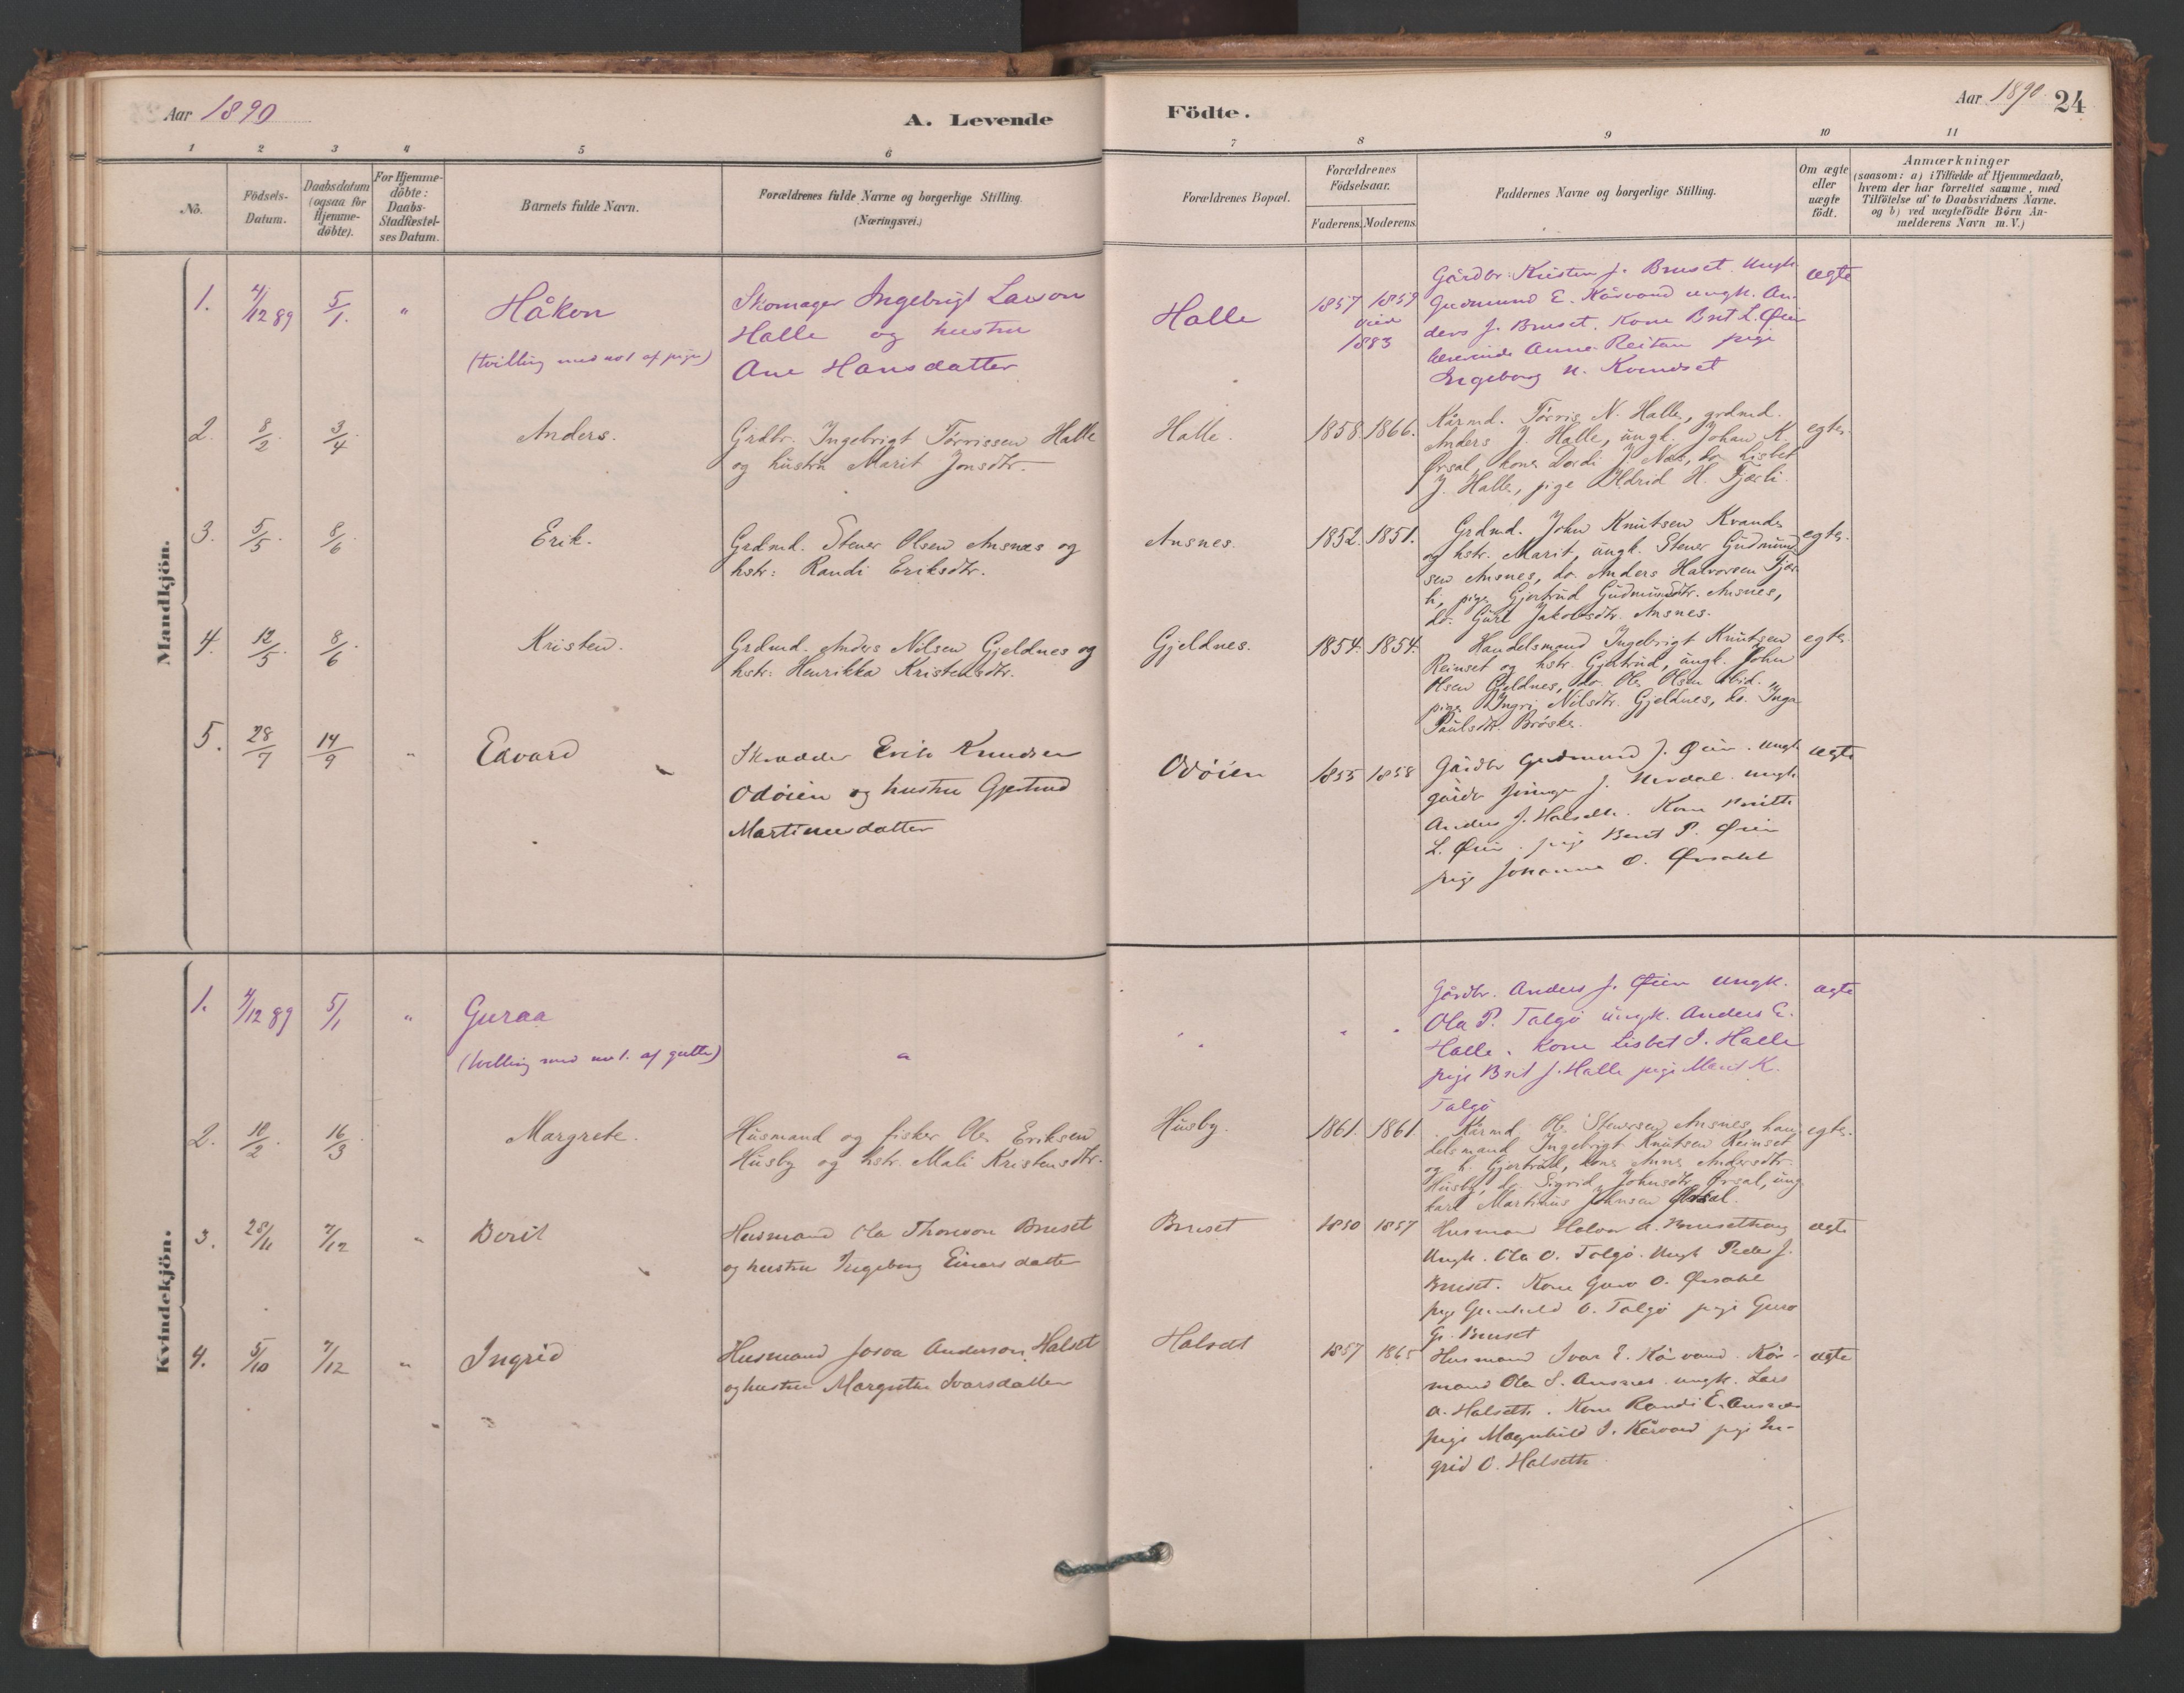 Aar 1890
A. Levende
Födte.
Aar 1890. 24
1 2 3 4 5 6 7 8 9 10 11
No.
Födsels-
Datum.
Daabsdatum
(ogsaa for
Hjemme-
döbte).
For Hjemme-
döbte:
Daabs-
Stadfæstel-
ses Datum.
Barnets fulde Navn.
Forældrenes fulde Navne og borgerlige Stilling.
(Næringsvei.)
Forældrenes Bopæl.
Forældrenes
Födselsaar.
Faderens. Moderens.
Faddernes Navne og borgerlige Stilling.
Om ægte
eller
uægte
födt.
Anmærkninger
(saasom: a) i Tilfælde af Hjemmedaab,
hvem der har forrettet samme, med
Tilföielse af to Daabsvidners Navne.
og b) ved uægtefödte Börn An-
melderens Navn m. V.)
Mandkjön.
1. 4/12 89 5/1. "
Håkon
(tvilling med no 1 af piger)
Skomager Ingebrigt Larson
Halle og hustru
Ane Hansdatter
Halle
1857 1859
viet
1883
Gårdbr. Kristen J. Bruset. Ungk.
Gudmund E. Kårvand ungk. An-
ders J. Bruset. Kone Brit L. Øien
Anna Reitan pige
Ingeborg N. Kvendset
ægte
2. 8/2. 3/4.
Anders.
Grdbr. Ingebrigt Tørrissen Halle
og hustru Marit Jonsdtr.
Halle.
1858. 1866.
Kårmd. Tørris N. Halle, grdmd.
Anders J. Halle, ungk. Johan K.
Ørsal, kone Dordi J. Næs, do Lisbet
J. Halle, pige Ildrid H. Fjærli.
egte.
3. 5/5. 8/6.
Erik.
Grdmd. Stener Olsen Ansnes og
hstr: Randi Eriksdtr.
Ansnes.
1852. 1851.
Grdmd. John Knutsen Kvande
og hstr. Marit, ungk. Stener Gudmund-
sen Ansnes, do. Anders Halvorsen Fjær-
li, pige Gjertrud Gudmundsdtr. Ansnes,
do. Guri Jakobsdtr. Ansnes.
egte.
4. 12/5. 8/6.
Kristen.
Grdmd. Anders Nilsen Gjeldnes og
hstr: Henrikka Kristensdtr.
Gjeldnes.
1854. 1854.
Handelsmand Ingebrigt Knutsen
Reinset og hstr. Gjertrud, ungk. John
Olsen Gjeldnes, do. Ole Olsen ibid.
pige Ingri Nilsdtr. Gjeldnes, do. Inga
Paulsdtr. Brøske.
egte.
5. 28/7 14/9 "
Edvard
Skrædder Erik Knudsen
Odøien og hustru Gjertrud
Martinusdatter
Odøien
1855 1858
Gårdbr Gudmund J. Øien. Ungk.
gårdbr J. Nerdal. ungk
Anders J. Halseth. Kone
L. Øien. pige Berit P. Øien
pige Johanna O. Ørsahl
ægte
Kvindekjön.
1. 4/12 89 5/1 "
Guraa
(tvilling med no 1. af gutter)
"
" " "
Gårdbr. Anders J. Øien ungk.
Ola P. Talgø ungk. Anders E.
Halle. Kone Lisbet I. Halle
pige Brit J. Halle pige Marit K.
Talgø
ægte
2. 10/2. 16/3.
Margrete.
Husmand og fisker Ole Eriksen
Husby og hstr. Mali Kristensdtr.
Husby.
1861. 1861.
Kårmd. Ole Stenersen Ansnes, han-
delsmand Ingebrigt Knutsen Reinset
og h. Gjertrud, kone Anne Andersdtr.
Husby, do. Sigrid Johnsdtr. Ørsal, ung-
karl Martinus Johnsen Ørsal.
egte.
3. 28/11 7/12 "
Berit
Husmand Ola Thoreson Bruset
og hustru Ingeborg Einarsdatter
Bruset
1850 1857
Husmand Halvor A. Brusethaug
Ungk. Ola O. Talgø. Ungk Peder J.
Bruset. Kone Guro O. Ørsahl
pige Gunhild O. Talgø pige Guro
G. Bruset
ægte
4. 5/10 7/12 "
Ingrid
Husmand Josva Anderson Halset
og hustru Margrethe Ivarsdatter
Halsett
1857 1865
Husmand Ivar E. Kårvand. Kår-
mand Ola S. Ansnes. ungk. Lars
A. Halseth. Kone Randi E. Ansnes
pige Magnhild I. Kårvand pige In-
grid O. Halseth
ægte